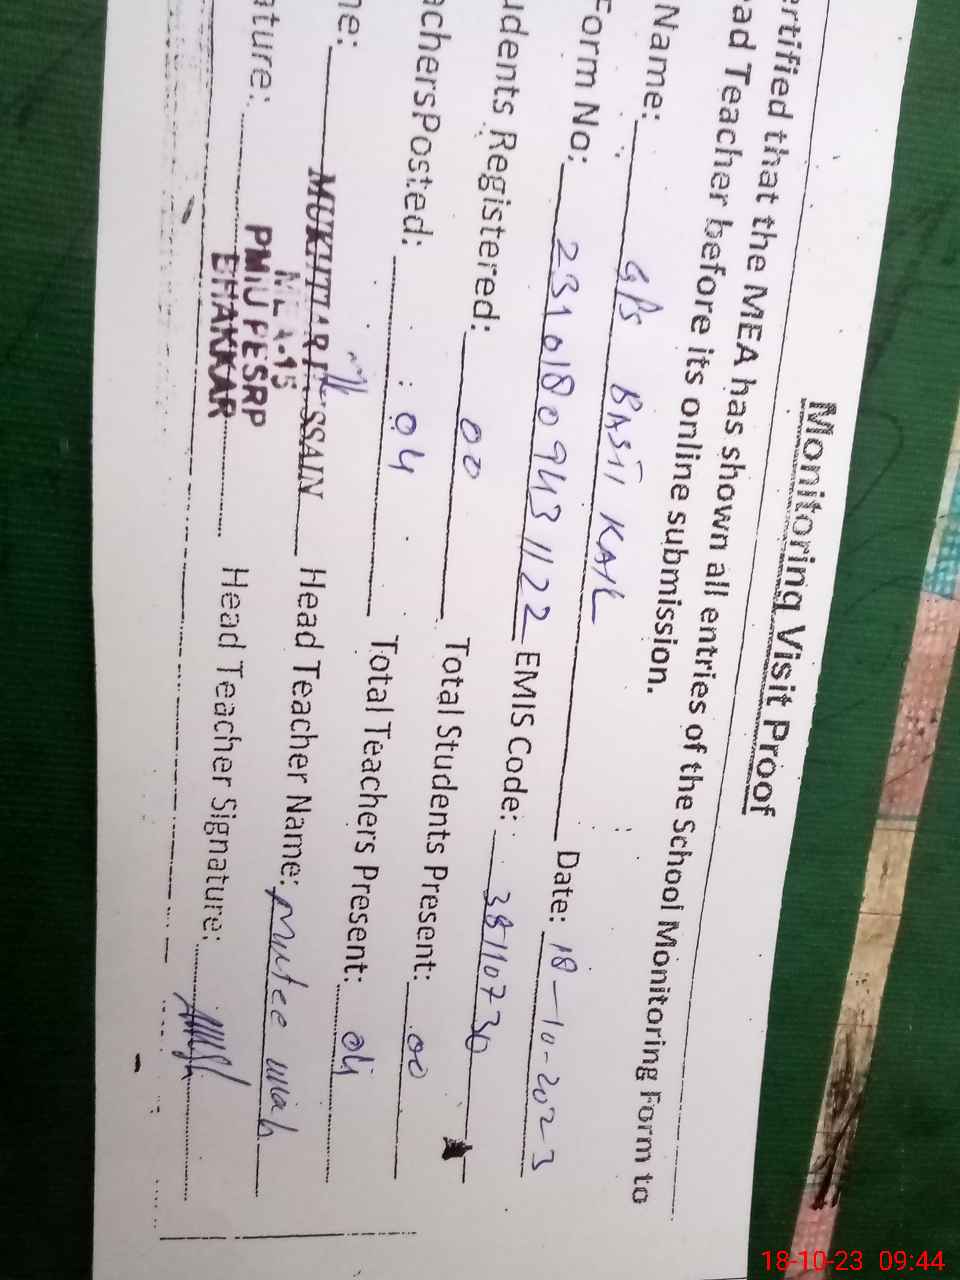 Monitoring Visit Proof
ertified that the MEA has shown all entries of the School Monitoring Form to
ad Teacher before its online submission.
Name: GPS BASTI KAIL Date: 18-10-2023
Form No: 23101809431122 EMIS Code: 38110730
udents Registered: 00 Total Students Present: 00
achersPosted: 04 Total Teachers Present: 04
ne: MUKHTIAR HUSSAIN Head Teacher Name:
ature: MEA-15 Head Teacher Signature:
PMIU PESRP
BHAKKAR
18-10-23 09:44